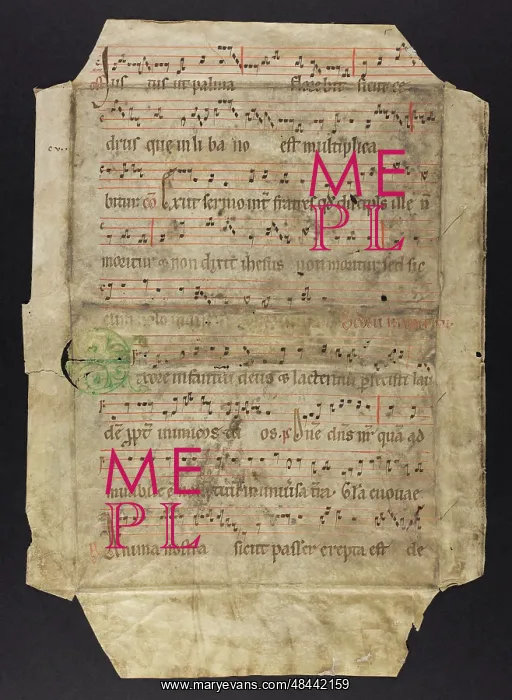 Jus tus ut palma florebit sicut ce
drus que in li ba no est multiplica
bitur cō Exiit sermo int fratres qd discipls ille n
moritur & non dixit ihesus non moritur sed sic
eum volo
Ex ore infantiu deus & lactentiu pfecisti lau
dē ppt inimicos tu os. ps Dne dns nr qua ad
in uniūsa tra. Gla euouae
Anima nostra sicut passer erepta est de
ME
PL
ME
PL
www.maryevans.com/48442159